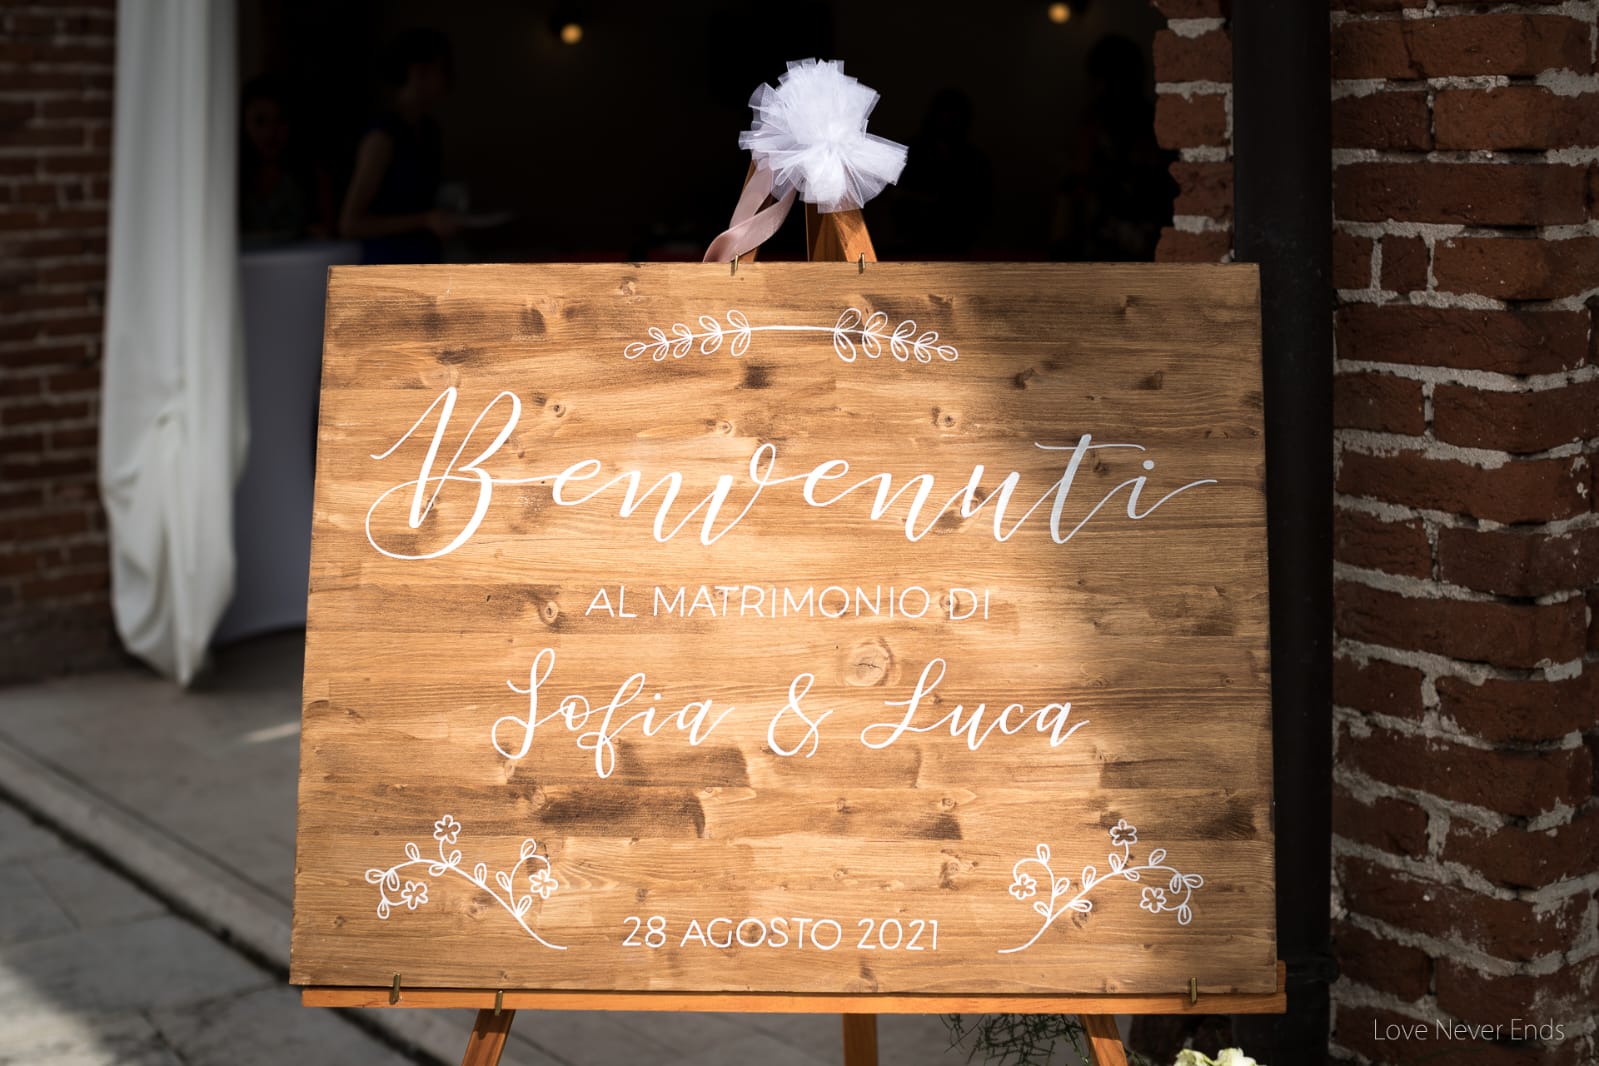 Benvenuti
AL MATRIMONIO DI
Sofia & Luca
28 AGOSTO 2021
Love Never Ends